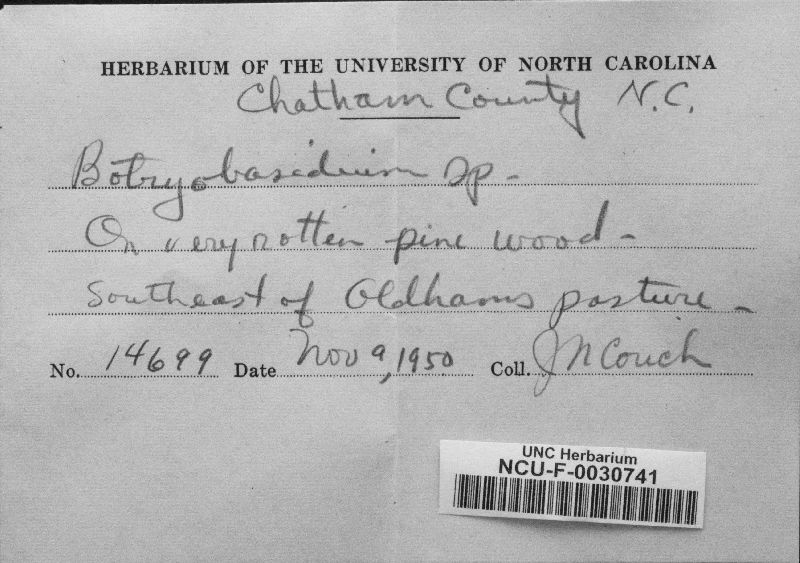 HERBARIUM OF THE UNIVERSITY OF NORTH CAROLINA
Chatham County N.C.
Botryobasidium sp-
On very rotten pine wood-
Southeast of Oldhams pasture-
No. 14699 Date Nov 9, 1950 Coll. J N Couch
UNC Herbarium
NCU-F-0030741